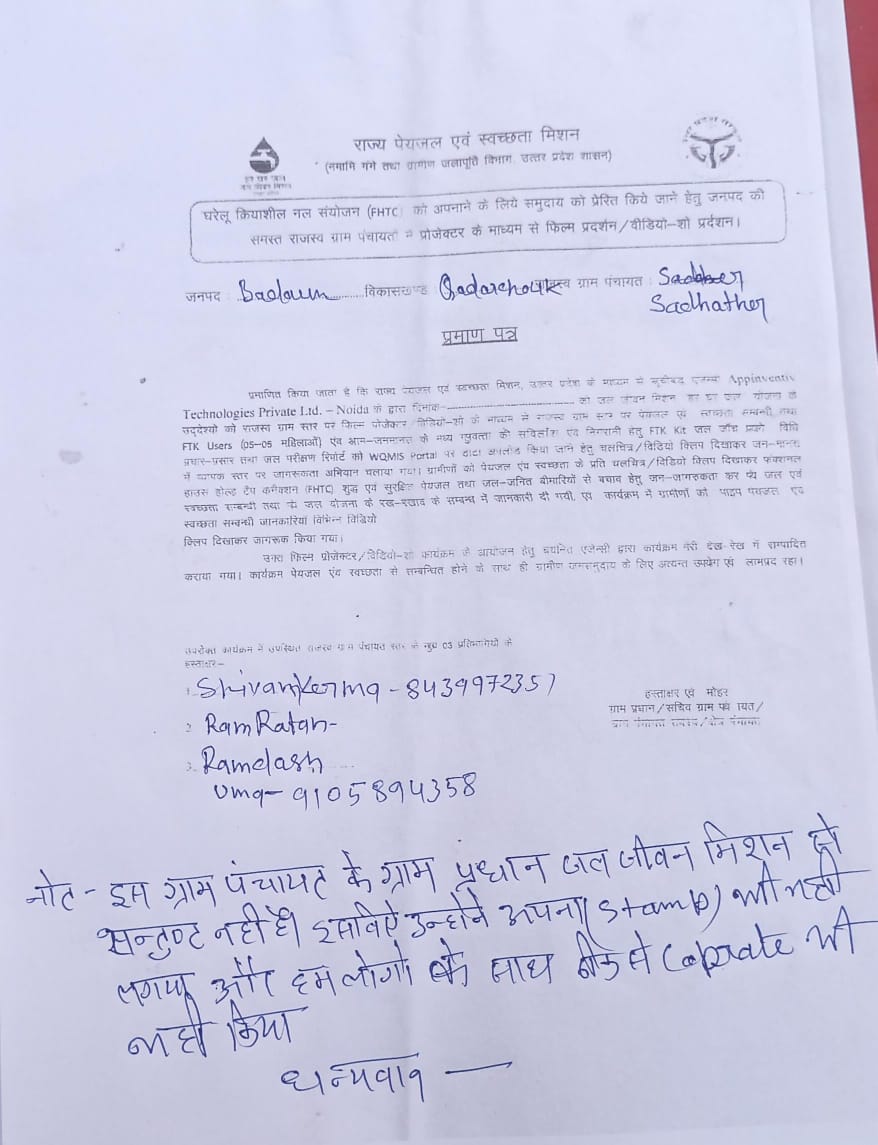 राज्य पेयजल एवं स्वच्छता मिशन
(नमामि गंगे तथा ग्रामीण जलापूर्ति विभाग, उत्तर प्रदेश शासन)
घरेलू कियाशील नल संयोजन (FHTC) को अपनाने के लिये समुदाय को प्रेरित किये जाने हेतु जनपद की
समस्त राजस्व ग्राम पंचायतों में प्रोजेक्टर के माध्यम से फिल्म प्रदर्शन/वीडियो-शो प्रर्दशन।
जनपद : Badaun विकासखण्ड Qadarchowk ग्राम पंचायत :
Sadhather
प्रमाण पत्र
प्रमाणित किया जाता है कि राज्य पेयजल एवं स्वच्छता मिशन, उत्तर प्रदेश के माध्यम से सूचीबद्ध एजेन्सी Appinventiv
Technologies Private Ltd. – Noida के द्वारा दिनांक- को जल जीवन मिशन हर घर जल योजना के
उद्देश्यो को राजस्व ग्राम स्तर पर फिल्म प्रोजेक्टर/विडियो-शो के माध्यम से राजस्व ग्राम स्तर पर पेयजल एवं स्वच्छता सम्बन्धी तथा
FTK Users (05-05 महिलाओं) एवं आम-जनमानस के मध्य गुणवत्ता की सर्विलांस एवं निगरानी हेतु FTK Kit जल जाँच प्रयोग विधि
प्रचार-प्रसार तथा जल परीक्षण रिपोर्ट को WQMIS Portal पर डाटा अपलोड किया जाने हेतु चलचित्र/विडियो क्लिप दिखाकर जन-मानस
में व्यापक स्तर पर जागरूकता अभियान चलाया गया। ग्रामीणों को पेयजल एंव स्वच्छता के प्रति चलचित्र/विडियो क्लिप दिखाकर फंक्शनल
हाउस होल्ड टैप कनैक्शन (FHTC) शुद्ध एवं सुरक्षित पेयजल तथा जल-जनित बीमारियों से बचाव हेतु जन-जागरूकता कर पेय जल एवं
स्वच्छता सम्बन्धी तथा पेय जल योजना के रख-रखाव के सम्बन्ध में जानकारी दी गयी, एवं कार्यक्रम में ग्रामीणों को पाइप पेयजल एवं
स्वच्छता सम्बन्धी जानकारियां विभिन्न विडियो
क्लिप दिखाकर जागरूक किया गया।
उक्त फिल्म प्रोजेक्टर/विडियो-शो कार्यक्रम के आयोजन हेतु चयनित एजेन्सी द्वारा कार्यक्रम मेरी देख-रेख में सम्पादित
कराया गया। कार्यक्रम पेयजल एंव स्वच्छता से सम्बन्धित होने के साथ ही ग्रामीण जनसमुदाय के लिए अत्यन्त उपयोग एवं लाभप्रद रहा।
उपरोक्त कार्यक्रम में उपस्थित राजस्व ग्राम पंचायत स्तर के मुख्य 03 प्रतिभागियों के
हस्ताक्षर–
1. Shivam - 8439972357
2. RamRatan-
3. Ramdash
Uma- 9105894358
हस्ताक्षर एवं मोहर
ग्राम प्रधान/सचिव ग्राम पंचायत/
नोट - इस ग्राम पंचायत के ग्राम प्रधान जल जीवन मिशन से
सन्तुष्ट नहीं है। इसलिऐ उन्होंने अपना (Stamp) भी नही
लगाया और हम लोगो के साथ ठीक से Coprate भी
नही किया
धन्यवाद —